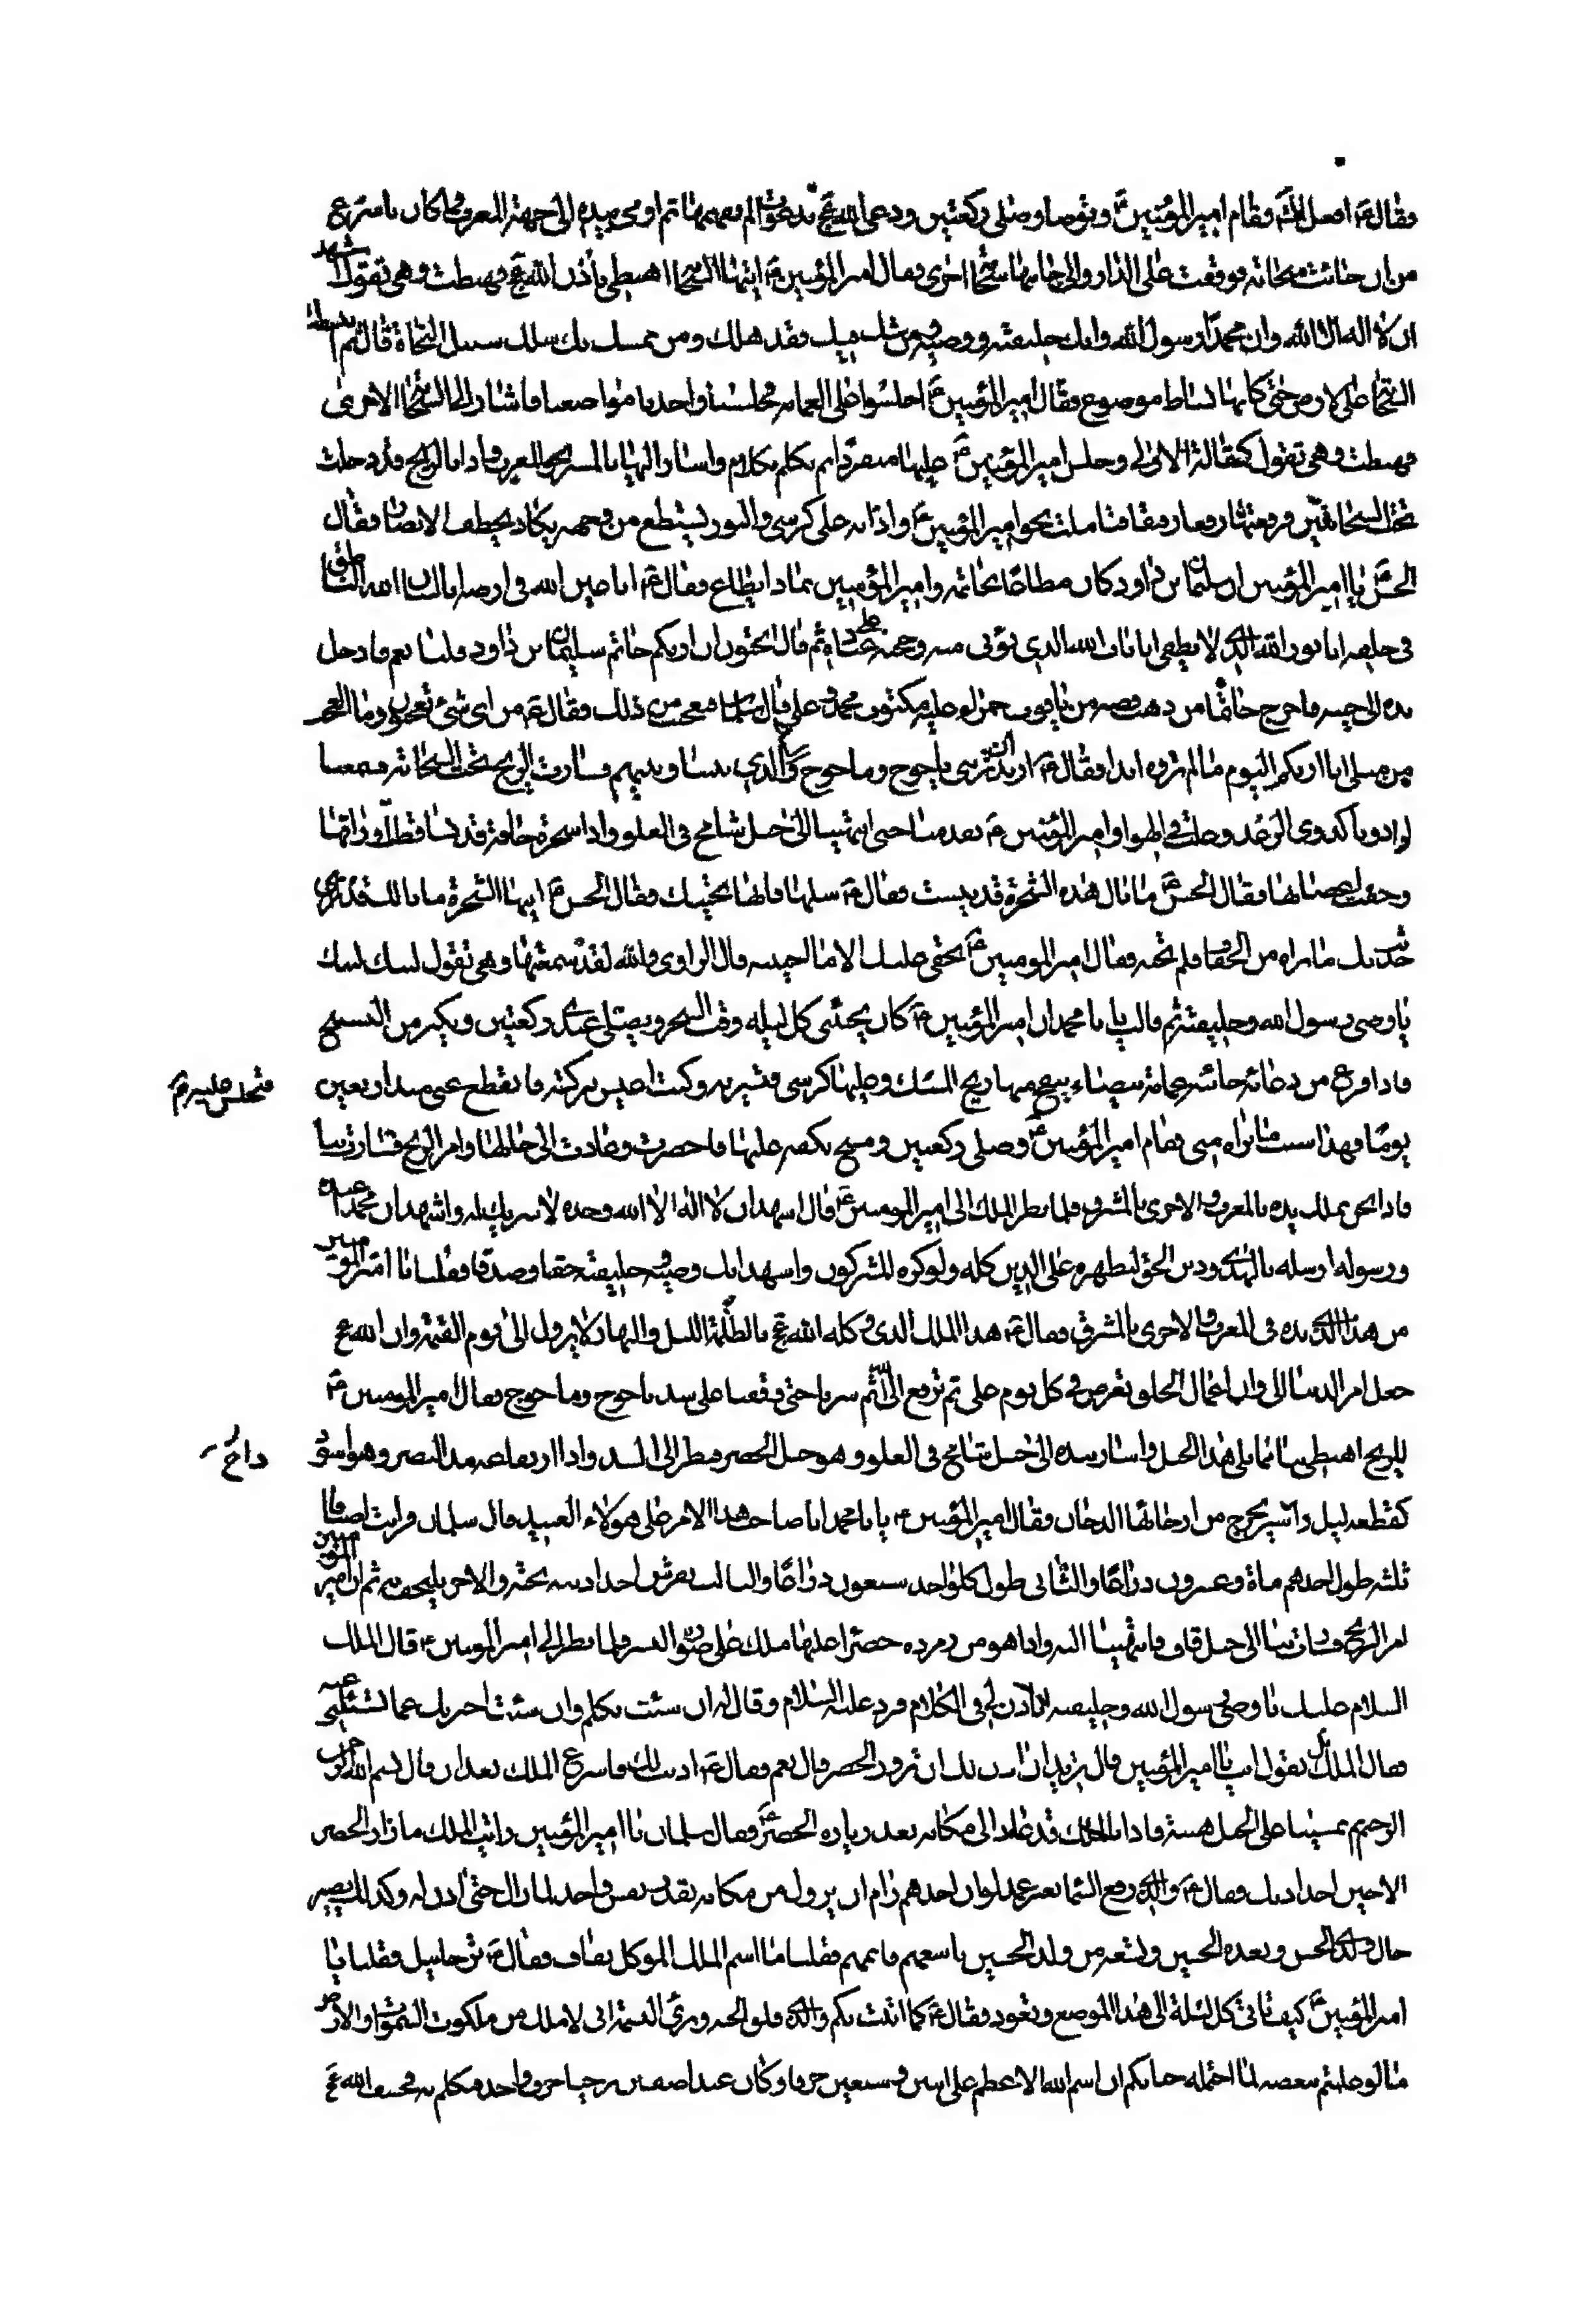 فقال ع افعل ذلك فقام امير المؤمنين ع وتوضا وصلى ركعتين ودعى الله عج بدعوات لم يفهمها ثم اومى بيده الى جهة المغرب فما كان باسرع
من ان جائت سحابة فوقفت على الدار والى جانبها سحابة اخرى فقال امير المؤمنين ع ايتها السحابة اهبطي باذن الله عج فهبطت وهي تقول اشهد
ان لا اله الا الله وان محمدا رسول الله وانك خليفته ووصيه من شك فيك فقد هلك ومن تمسك بك سلك سبيل النجاة قال ثم انبسطت
السحابة على الارض حتى كانها بساط موضوع فقال امير المؤمنين ع اجلسوا على الغمامة فجلسنا واخذنا مواضعنا فاشار الى السحابة الاخرى
فهبطت وهي تقول كمقالة الاولى وجلس امير المؤمنين ع عليها منفردا ثم تكلم بكلام واشار اليها بالمسير نحو المغرب واذا بالريح قد دخلت
تحت السحابتين فرفعتهما رفعا رفيقا فتاملت نحو امير المؤمنين ع واذا به على كرسي والنور يسطع من وجهه يكاد يخطف الابصار فقال
الحسن ع يا امير المؤمنين ان سليمان بن داود كان مطاعا بخاتمه وامير المؤمنين بماذا يطاع فقال ع انا عين الله في ارضه انا لسان الله الناطق
في خلقه انا نور الله الذي لا يطفى انا باب الله الذي يؤتى منه وحجته على عباده ثم قال اتحبون ان اريكم خاتم سليمان بن داود قلنا نعم فادخل
يده الى جيبه فاخرج خاتما من ذهب فصه من ياقوتة حمراء عليه مكتوب محمد وعلي قال سلمان فعجبنا من ذلك فقال ع من اي شيء تعجبون وما العجب
من مثلي انا اريكم اليوم ما لم تروه ابدا فقال ع اريد ان تريني ياجوج وماجوج والسد الذي بيننا وبينهم فسارت الريح تحت السحابة فسمعنا
لها دويا كدوي الرعد وعلت في الهوا وامير المؤمنين ع يقدمنا حتى انتهينا الى جبل شامخ في العلو واذا شجرة جافة قد تساقطت اوراقها
وجفت اغصانها فقال الحسن ع ما بال هذه الشجرة قد يبست فقال ع سلها فانها تجيبك فقال الحسن ع ايتها الشجرة ما بالك قد نرى
حدث بك ما نراه من الجفاف فلم تجبه فقال امير المؤمنين ع بحقي عليك الا ما اجبتيه قال الراوي والله لقد سمعتها وهي تقول لبيك لبيك
يا وصي رسول الله وخليفته ثم قالت يا ابا محمد ان امير المؤمنين ع كان يجئني كل ليلة وقت السحر ويصلي عندي ركعتين ويكثر من التسبيح
فاذا فرغ من دعائه جائته غمامة بيضاء ينفح منها ريح المسك وعليها كرسي فتسير به وكنت اعيش ببركته فانقطع عني منذ اربعين
فيجلس عليه ثم
يوما فهذا سبب ما تراه مني فقام امير المؤمنين ع وصلى ركعتين ومسح بكفه عليها فاخضرت وعادت الى حالها وامر الريح فسارت بنا
فاذا نحن بملك يده بالمغرب والاخرى بالمشرق فلما نظر الملك الى امير المؤمنين ع قال اشهد ان لا اله الا الله وحده لا شريك له واشهد ان محمدا عبده
ورسوله ارسله بالهدى ودين الحق ليظهره على الدين كله ولو كره المشركون واشهد انك وصيه وخليفته حقا وصدقا فقلنا يا امير المؤمنين
من هذا الذي يده في المغرب والاخرى بالمشرق فقال ع هذا الملك الذي وكله الله عج بالظلمة الليل والنهار لا يزول الى يوم القيمة وان الله عج
جعل امر الدنيا الي وان اعمال الخلق تعرض في كل يوم علي ثم ترفع الى الله ثم سرنا حتى وقفنا على سد ياجوج وماجوج فقال امير المؤمنين ع
للريح اهبطي بنا مما يلي هذا الجبل واشار بيده الى جبل شامخ في العلو وهو جبل الخضر فنظر الى السد واذا ارتفاعه مد البصر وهو اسود
كقطعة ليل دامس يخرج من ارجائها الدخان فقال امير المؤمنين ع يا ابا محمد انا صاحب هذا الامر على هؤلاء العبيد قال سلمان فرايت اصنافا
ثلثة طول احدهم مائة وعشرون ذراعا والثاني طول كل واحد سبعون ذراعا والثالث يفرش احد اذنيه تحته والاخرى يلتحف به ثم ان امير المؤمنين
امر الريح فسارت بنا الى جبل قاف فانتهينا اليه واذا هو من زمردة خضراء عليها ملك على صورة النسر فلما نظر الى امير المؤمنين ع قال الملك
السلام عليك يا وصي رسول الله وخليفته اتاذن لي في الكلام فرد عليه السلام وقال له ان شئت تكلم وان شئت اخبرتك عما تسئلني عنه
فقال الملك بل تقول انت يا امير المؤمنين قال تريد ان اذن لك ان تزور الخضر قال نعم فقال ع قد اذنت لك فاسرع الملك بعد ان قال بسم الله الرحمن
الرحيم تمشينا على الجبل هنيئة فاذا بالملك قد عاد الى مكانه بعد زيارة الخضر ع فقال سلمان يا امير المؤمنين رايت الملك ما زار الخضر
الا حين اخذ اذنك فقال ع والذي رفع السماء بغير عمد لو ان احدهم رام ان يزول من مكانه بقدر نفس واحد لما زال حتى اذن له وكذلك يصير
حال ولدي الحسن وبعده الحسين وتسعة من ولد الحسين تاسعهم قائمهم فقلنا ما اسم الملك الموكل بقاف فقال ع ترجائيل فقلنا يا
امير المؤمنين ع كيف تاتي كل ليلة الى هذا الموضع وتعود فقال ع كما اتيت بكم والذي فلق الحبة وبرئ النسمة اني لاملك من ملكوت السموات والارض
ما لو علمتم ببعضه لما احتمله جنانكم ان اسم الله الاعظم على اثنين وسبعين حرفا وكان عند اصف بن برخيا حرف واحد فتكلم به فخسف الله عج